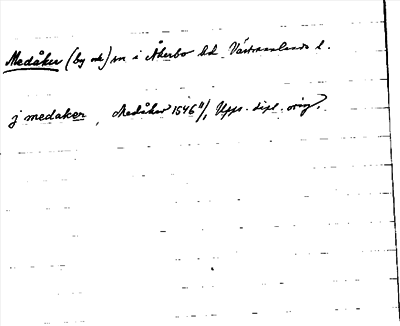 Medåker (by och) sn i Åkerbo hd Västmanlands l.
j medaker, Medåker 1546 11/1 Upps. dipl. orig.